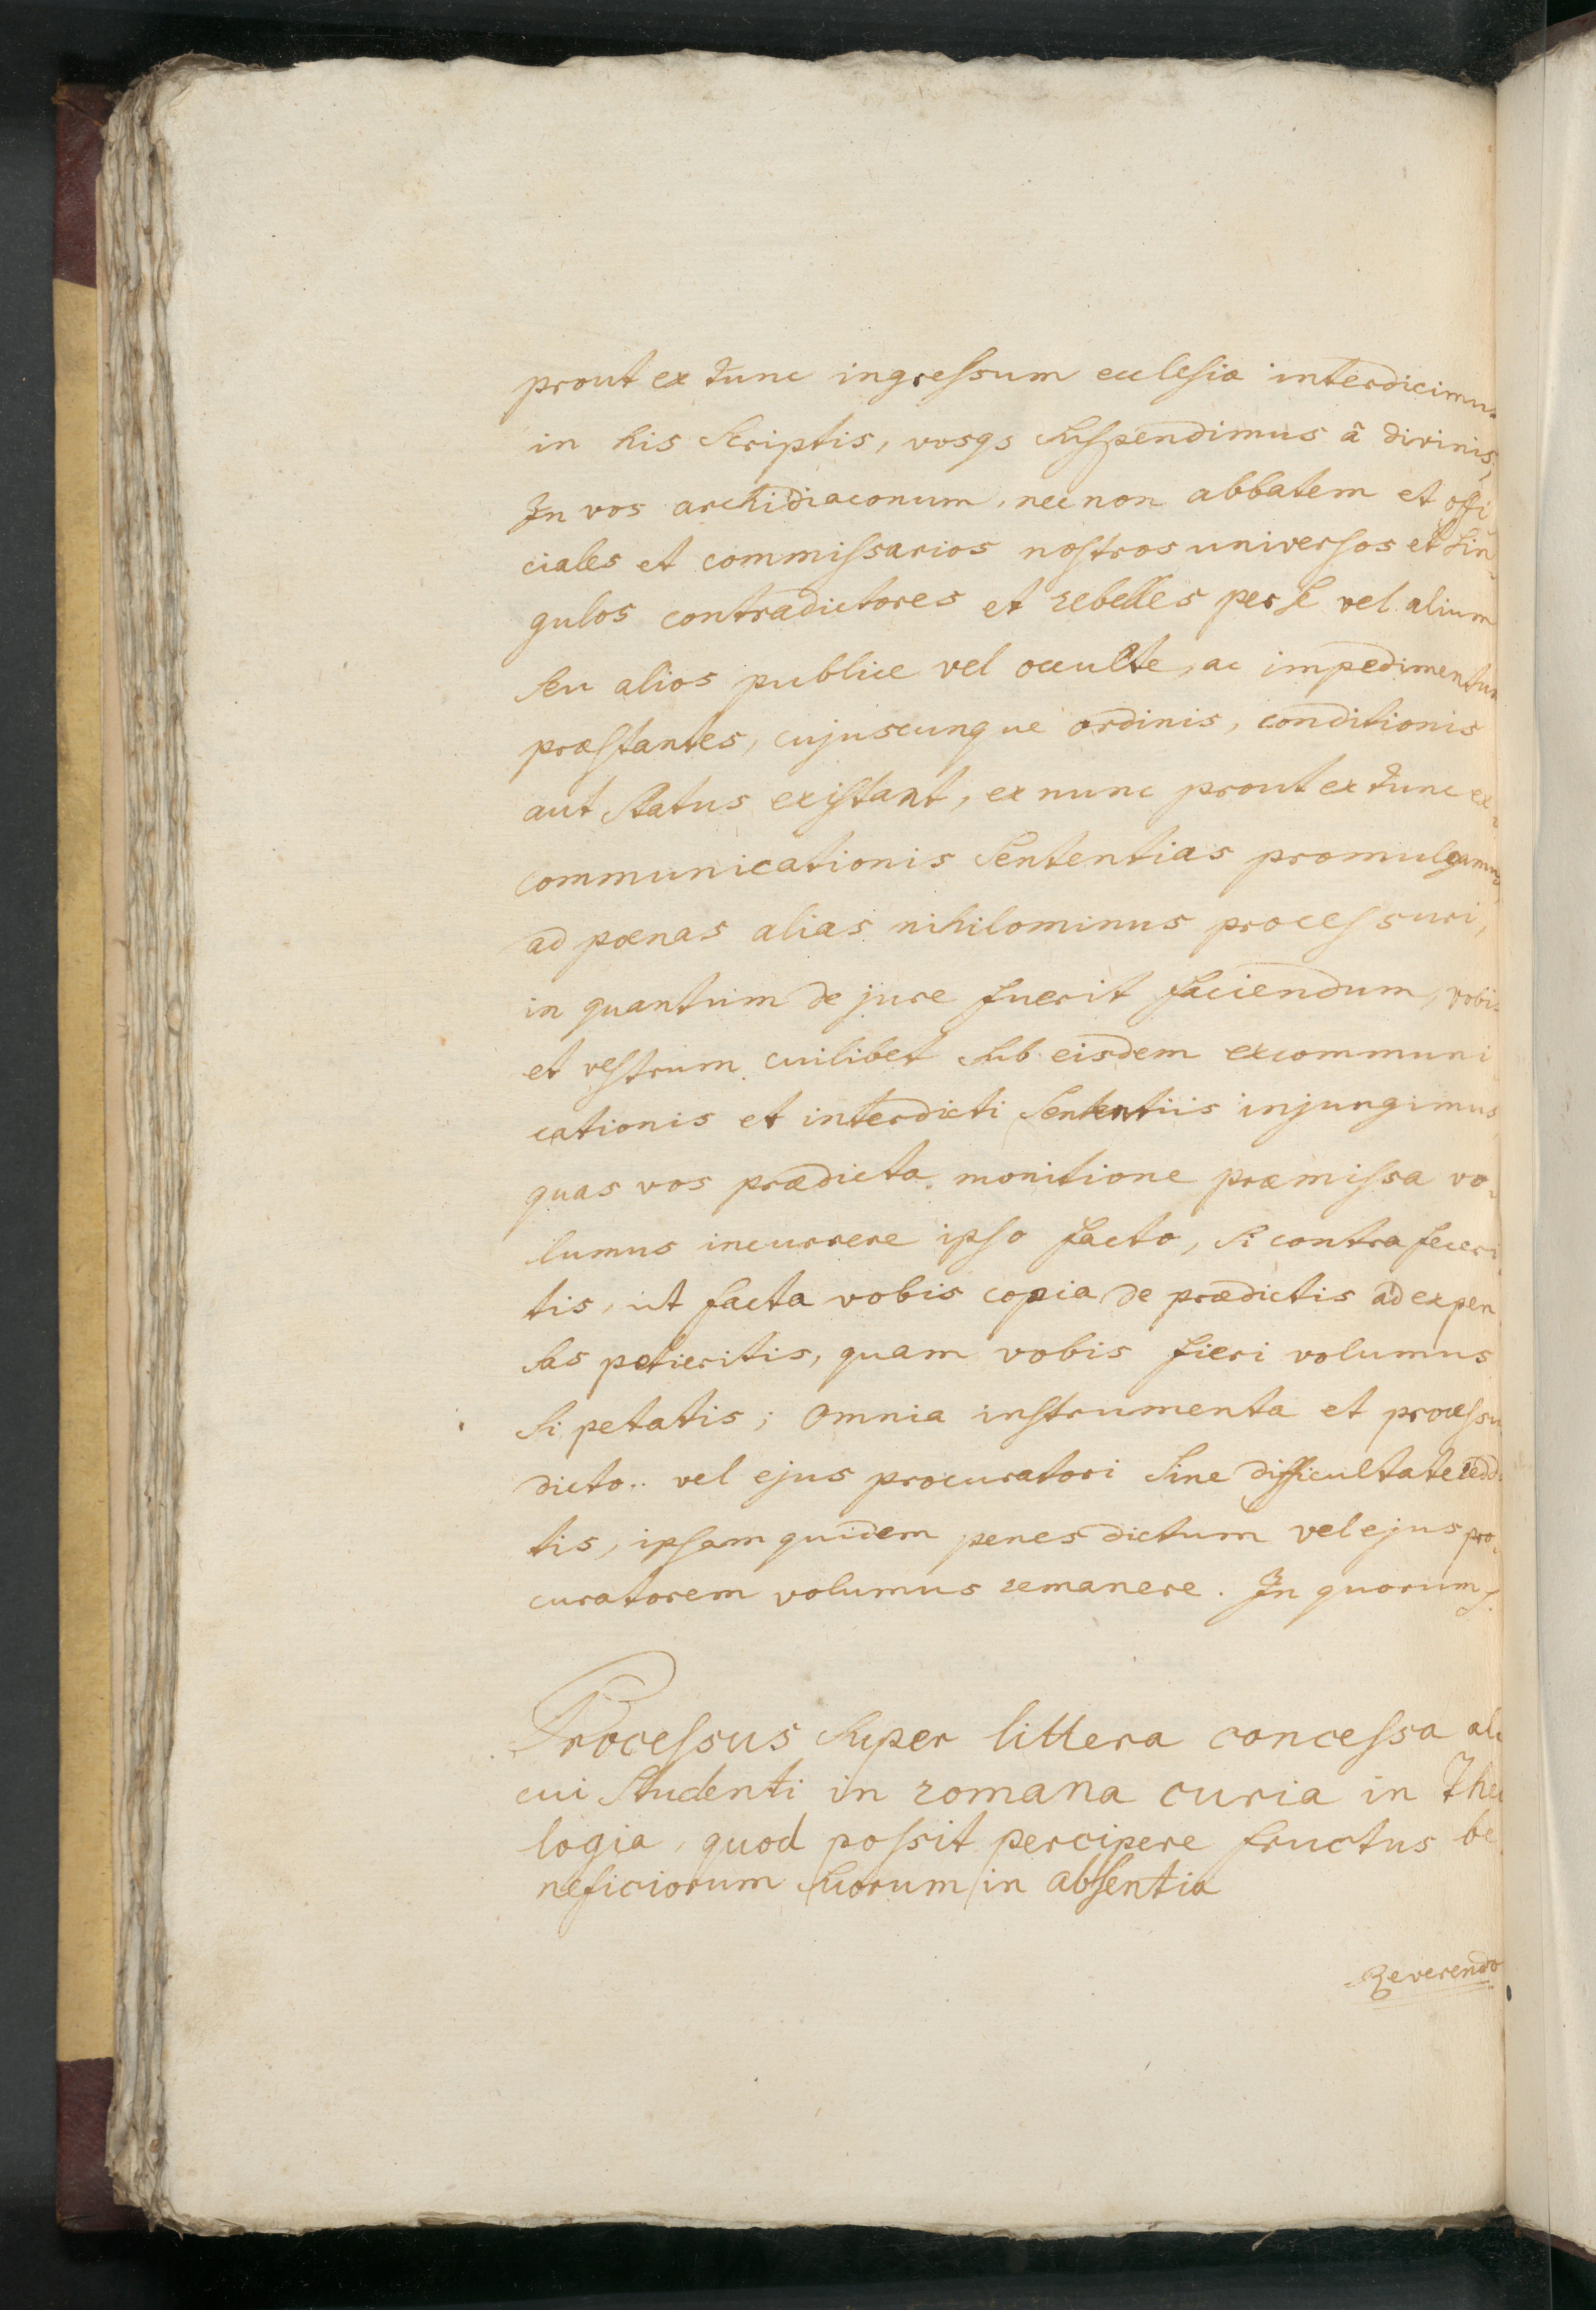 prout ex tunc ingressum ecclesia interdicimus
in his scriptis, vosqs suspendimus â divinis,
In vos archidiaconum, nec non abbatem et offi
ciales et commissarios nostros universos et sin
gulos contradictores et rebelles per se vel alium
seu alios publice vel occulte, ac impedimentum
præstantes, cujuscunque ordinis, conditionis
aut status existant, ex nunc prout ex tunc ex-
communicationis sententias promulgamus,
ad pœnas alias nihilominus processuri,
in quantum de jure fuerit faciendum, vobis
et vestrum cuilibet sub eisdem excommuni
cationis et interdicti sententiis injungimus
quas vos prædicta monitione præmissa vo-
lumus incurrere ipso facto, si contra feceri
tis, ut facta vobis copia de prædictis ad expen
sas petieritis, quam vobis fieri volumus
si petatis; omnia instrumenta et processu
dicto.. vel ejus procuratori sine difficultate reddi
tis, ipsam quidem penes dictum vel ejus pro-
curatorem volumus remanere. In quorum
Processus super littera concessa ali
cui studenti in romana curia in theo
logia, quod possit percipere fructus be
neficiorum suorum in absentia
Reverendo